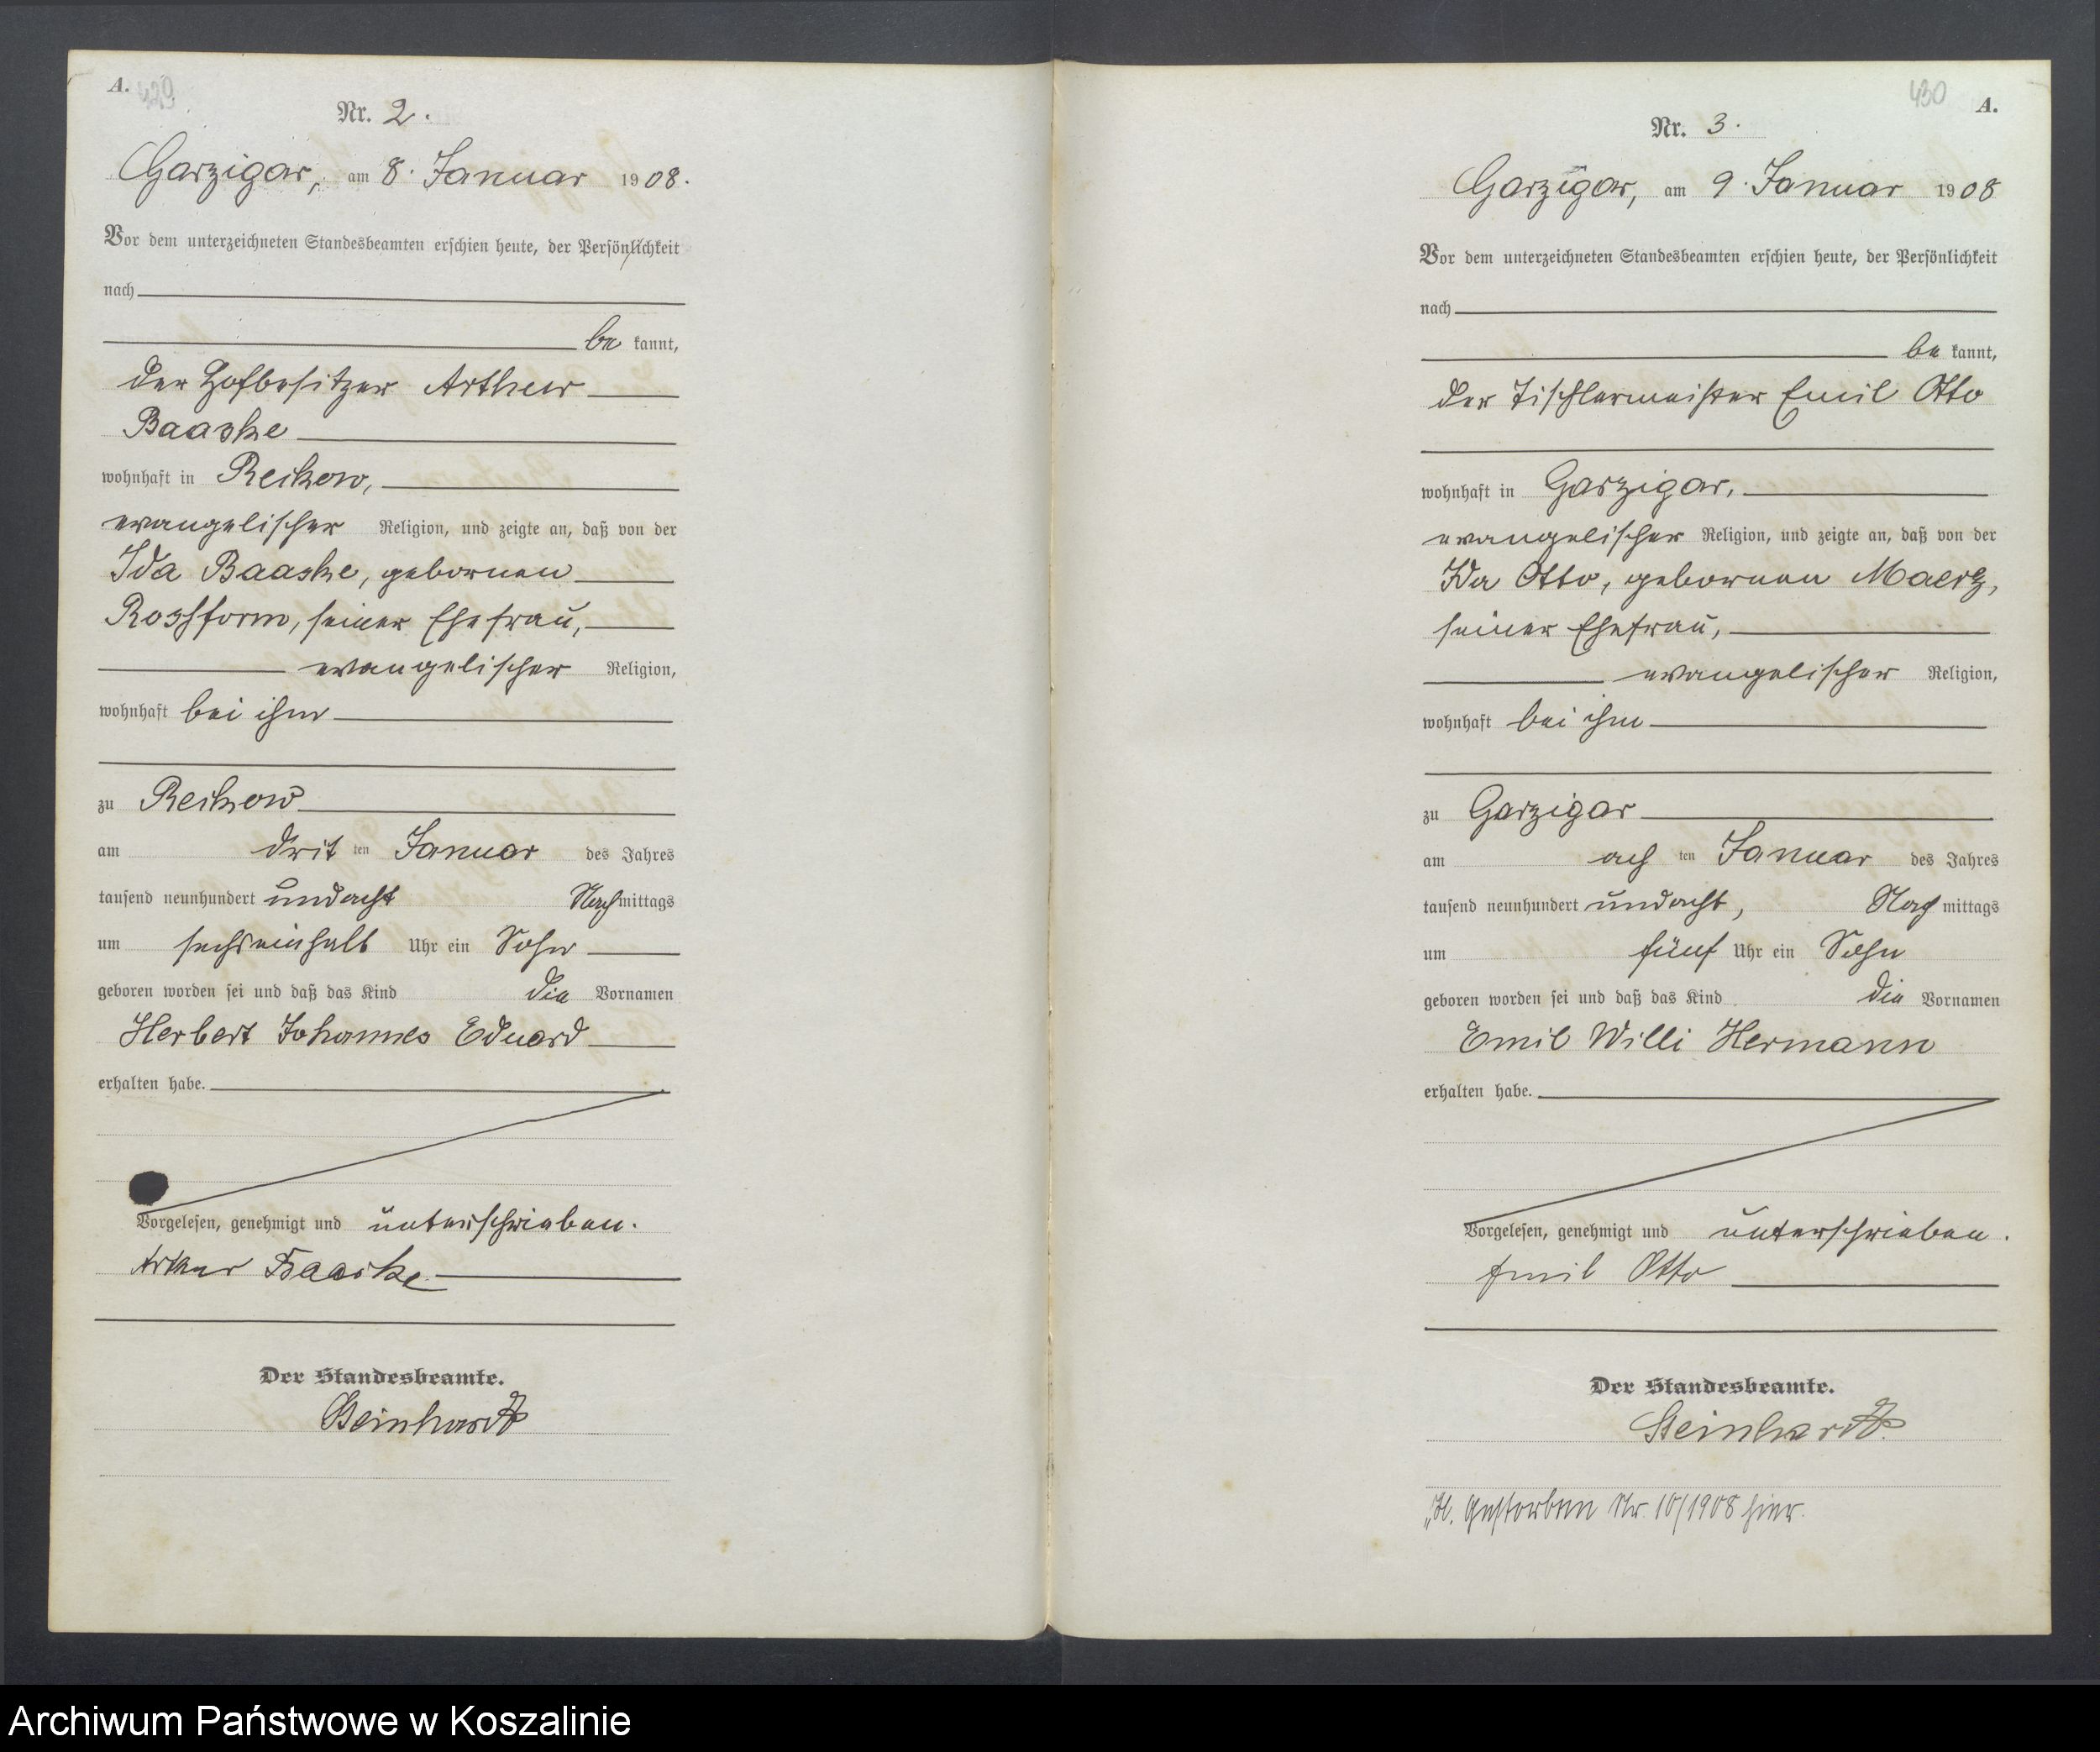 A. 429
Nr. 2.
Garzigar, am 8. Januar 1908.
Vor dem unterzeichneten Standesbeamten erschien heute, der Persönlichkeit
nach
be kannt,
der Hofbesitzer Arthur
Baaske
wohnhaft in Reckow,
evangelischer Religion, und zeigte an, daß von der
Ida Baaske, geborenen
seiner Ehefrau,
evangelischer Religion,
wohnhaft bei ihm
zu Reckow
am drit ten Januar des Jahres
tausend neunhundert und acht Nachmittags
um sechseinhalb Uhr ein Sohn
geboren worden sei und daß das Kind die Vornamen
Herbert Johannes Eduard
erhalten habe.
Vorgelesen, genehmigt und unterschrieben.
Arthur Baaske
Der Standesbeamte.
Steinhardt
430 A.
Nr. 3.
Garzigar, am 9. Januar 1908
Vor dem unterzeichneten Standesbeamten erschien heute, der Persönlichkeit
nach
be kannt,
der Tischlermeister Emil Otto
wohnhaft in Garzigar,
evangelischer Religion, und zeigte an, daß von der
Ida Otto, geborenen Maerz,
seiner Ehefrau,
evangelischer Religion,
wohnhaft bei ihm
zu Garzigar
am ach ten Januar des Jahres
tausend neunhundert und acht, Nach mittags
um fünf Uhr ein Sohn
geboren worden sei und daß das Kind die Vornamen
Emil Willi Hermann
erhalten habe.
Vorgelesen, genehmigt und unterschrieben.
Emil Otto
Der Standesbeamte.
Steinhardt.
Gestorben Nr. 10/1908 hier.
Archiwum Państwowe w Koszalinie